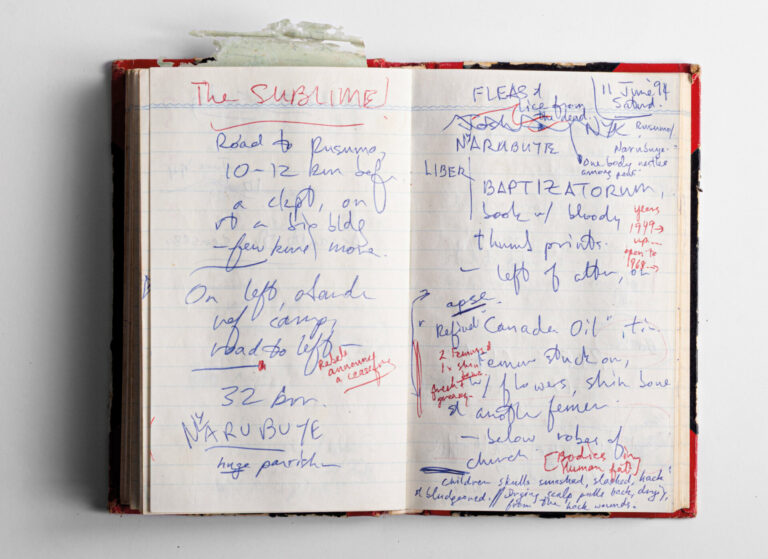 The SUBLIME
Road to Rusumo,
10-12 km bef
a ckpt, on
rt a big bldg
- few kms more.
On left, oftande
ref camp,
road to left -
Rebels
announcing
a ceasefire
32 km.
NYARUBUYE
huge parish
FLEAS &
lice from
the dead.
11 June '94
Saturd.
NYK
Rusumo/
Narubuye.
NYARUBUYE
One body nestles
among pods
LIBER
BAPTIZATORUM,
book w/ bloody
thumb prints.
years
1949→
up...
open to
1968→
- left of altar, on
apse.
Refined "Canada Oil", tin
2 femurs &
1 x shin
bone
femur stuck on,
w/ flowers, shin bone
& another femur.
- below robes of
church
[Bodies in
human fat]
children skulls smashed, slashed, hack
& bludgeoned. // Drying scalp pulls back, drying,
from the hack wounds.